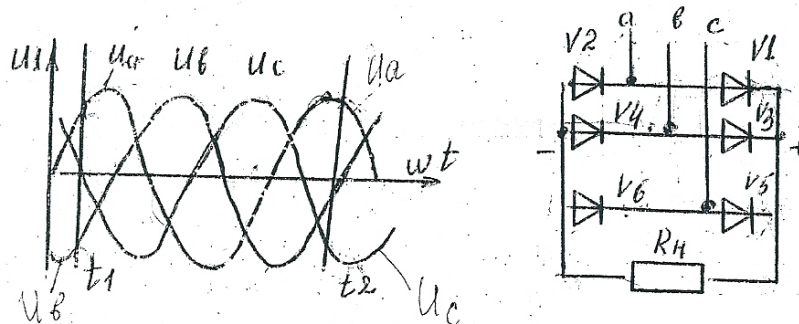 U1
Ua
Uв
Uc
Ua
ωt
t1
t2
Uв
Uc
a в c
V2
V1
V4
V3
V6
V5
−
+
Rн